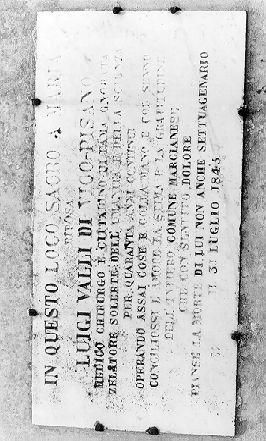 IN QUESTO LOCO SACRO A MARIA
RIPOSA
LUIGI VALLI DI VICO-PISANO
MEDICO CHIRURGO E CITTADINO
ZELATORE SOLERTE DELL' DELLA SCIENZA
PER QUARANTA ANNI CONTINUI
OPERANDO ASSAI COSE E COLLA MANO E COL SENNO
CONCILIOSSI L' AMORE LA STIMA E LA GRATITUDINE
DELL' INTIERO COMUNE MARCIANESE
CHE CON SENTITO DOLORE
PIANSE LA MORTE DI LUI NON ANCHE SETTUAGENARIO
IL 31 LUGLIO 1845